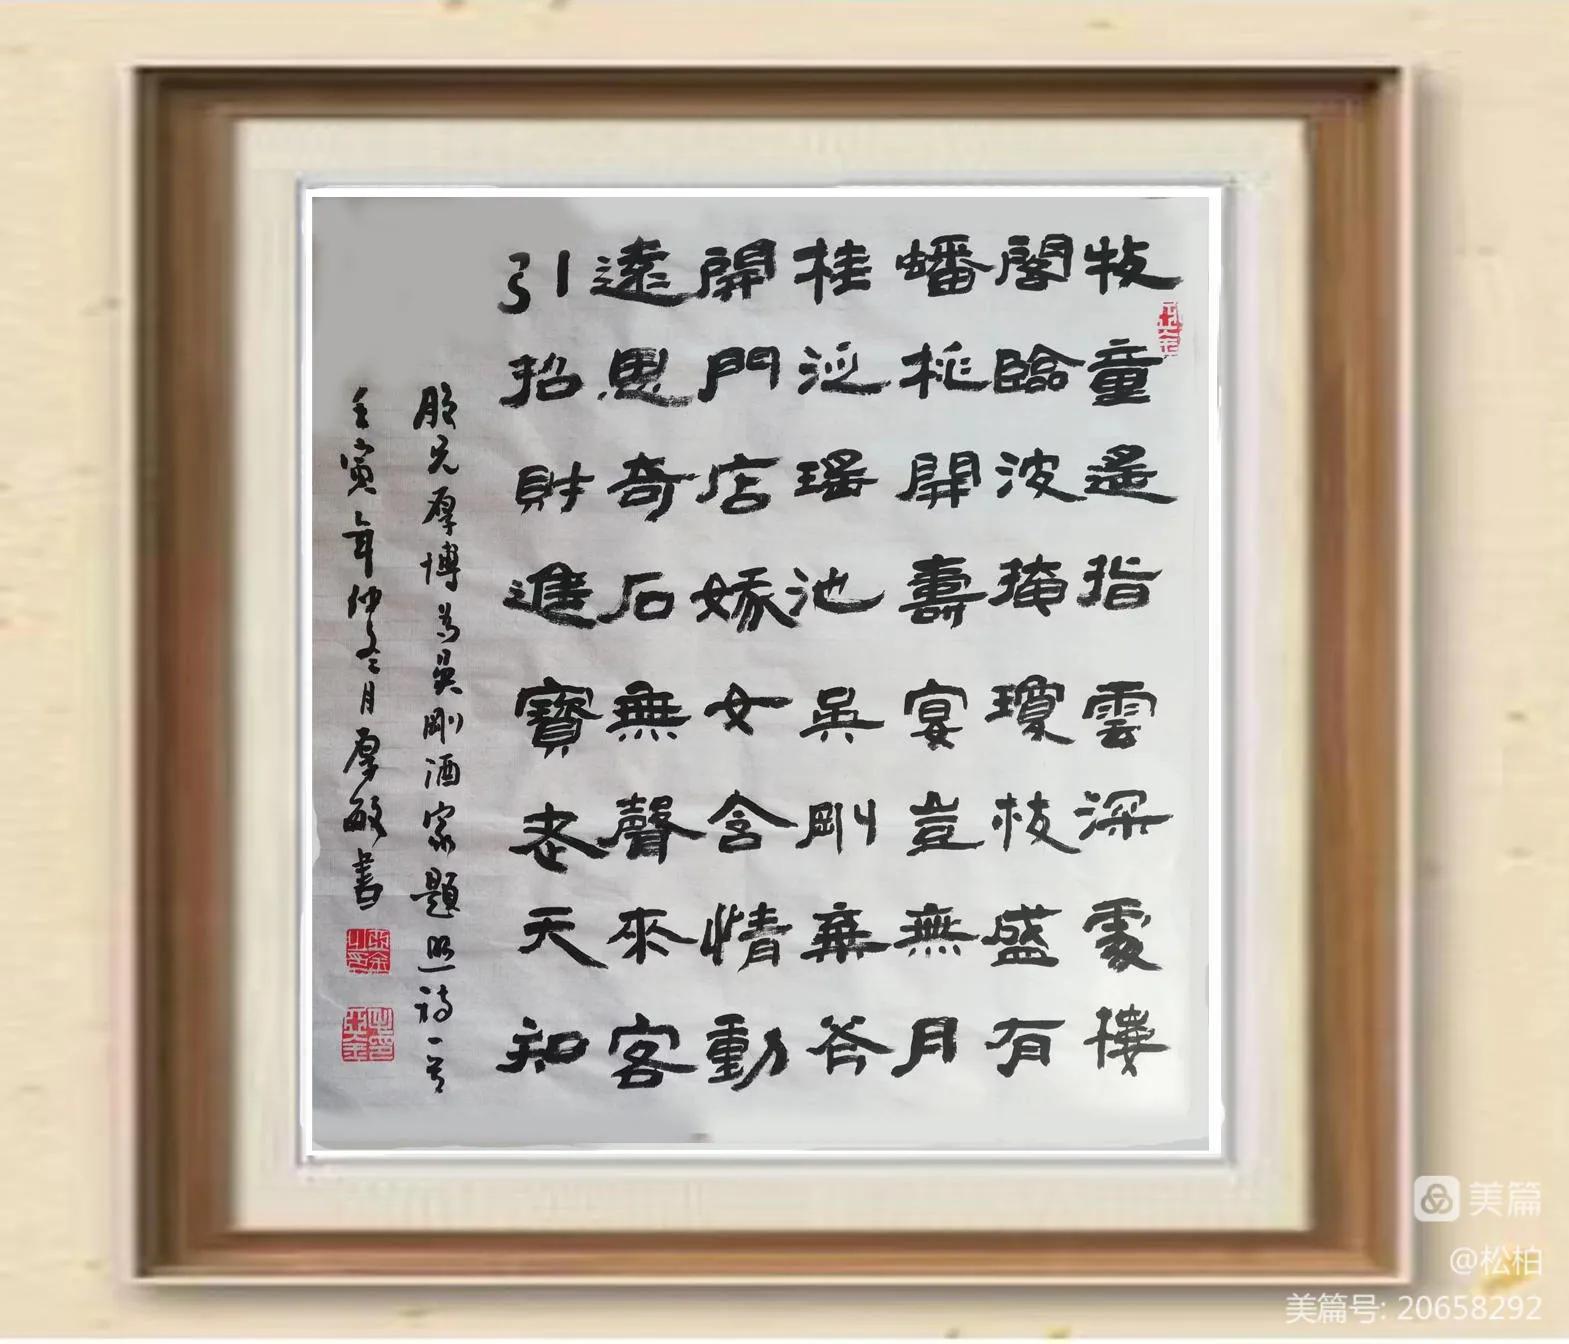 牧童遙指雲深處樓
閣臨波掩瓊枝盛有
蟠桃開壽宴豈無月
桂泛瑤池吳剛棄斧
開門店嫁女含情動
遠思奇石無聲來客
引招財進寶老天知
胞兄厚博為吳剛酒家題照詩一首
壬寅年仲冬月厚敏書
美篇
@松柏
美篇号: 20658292